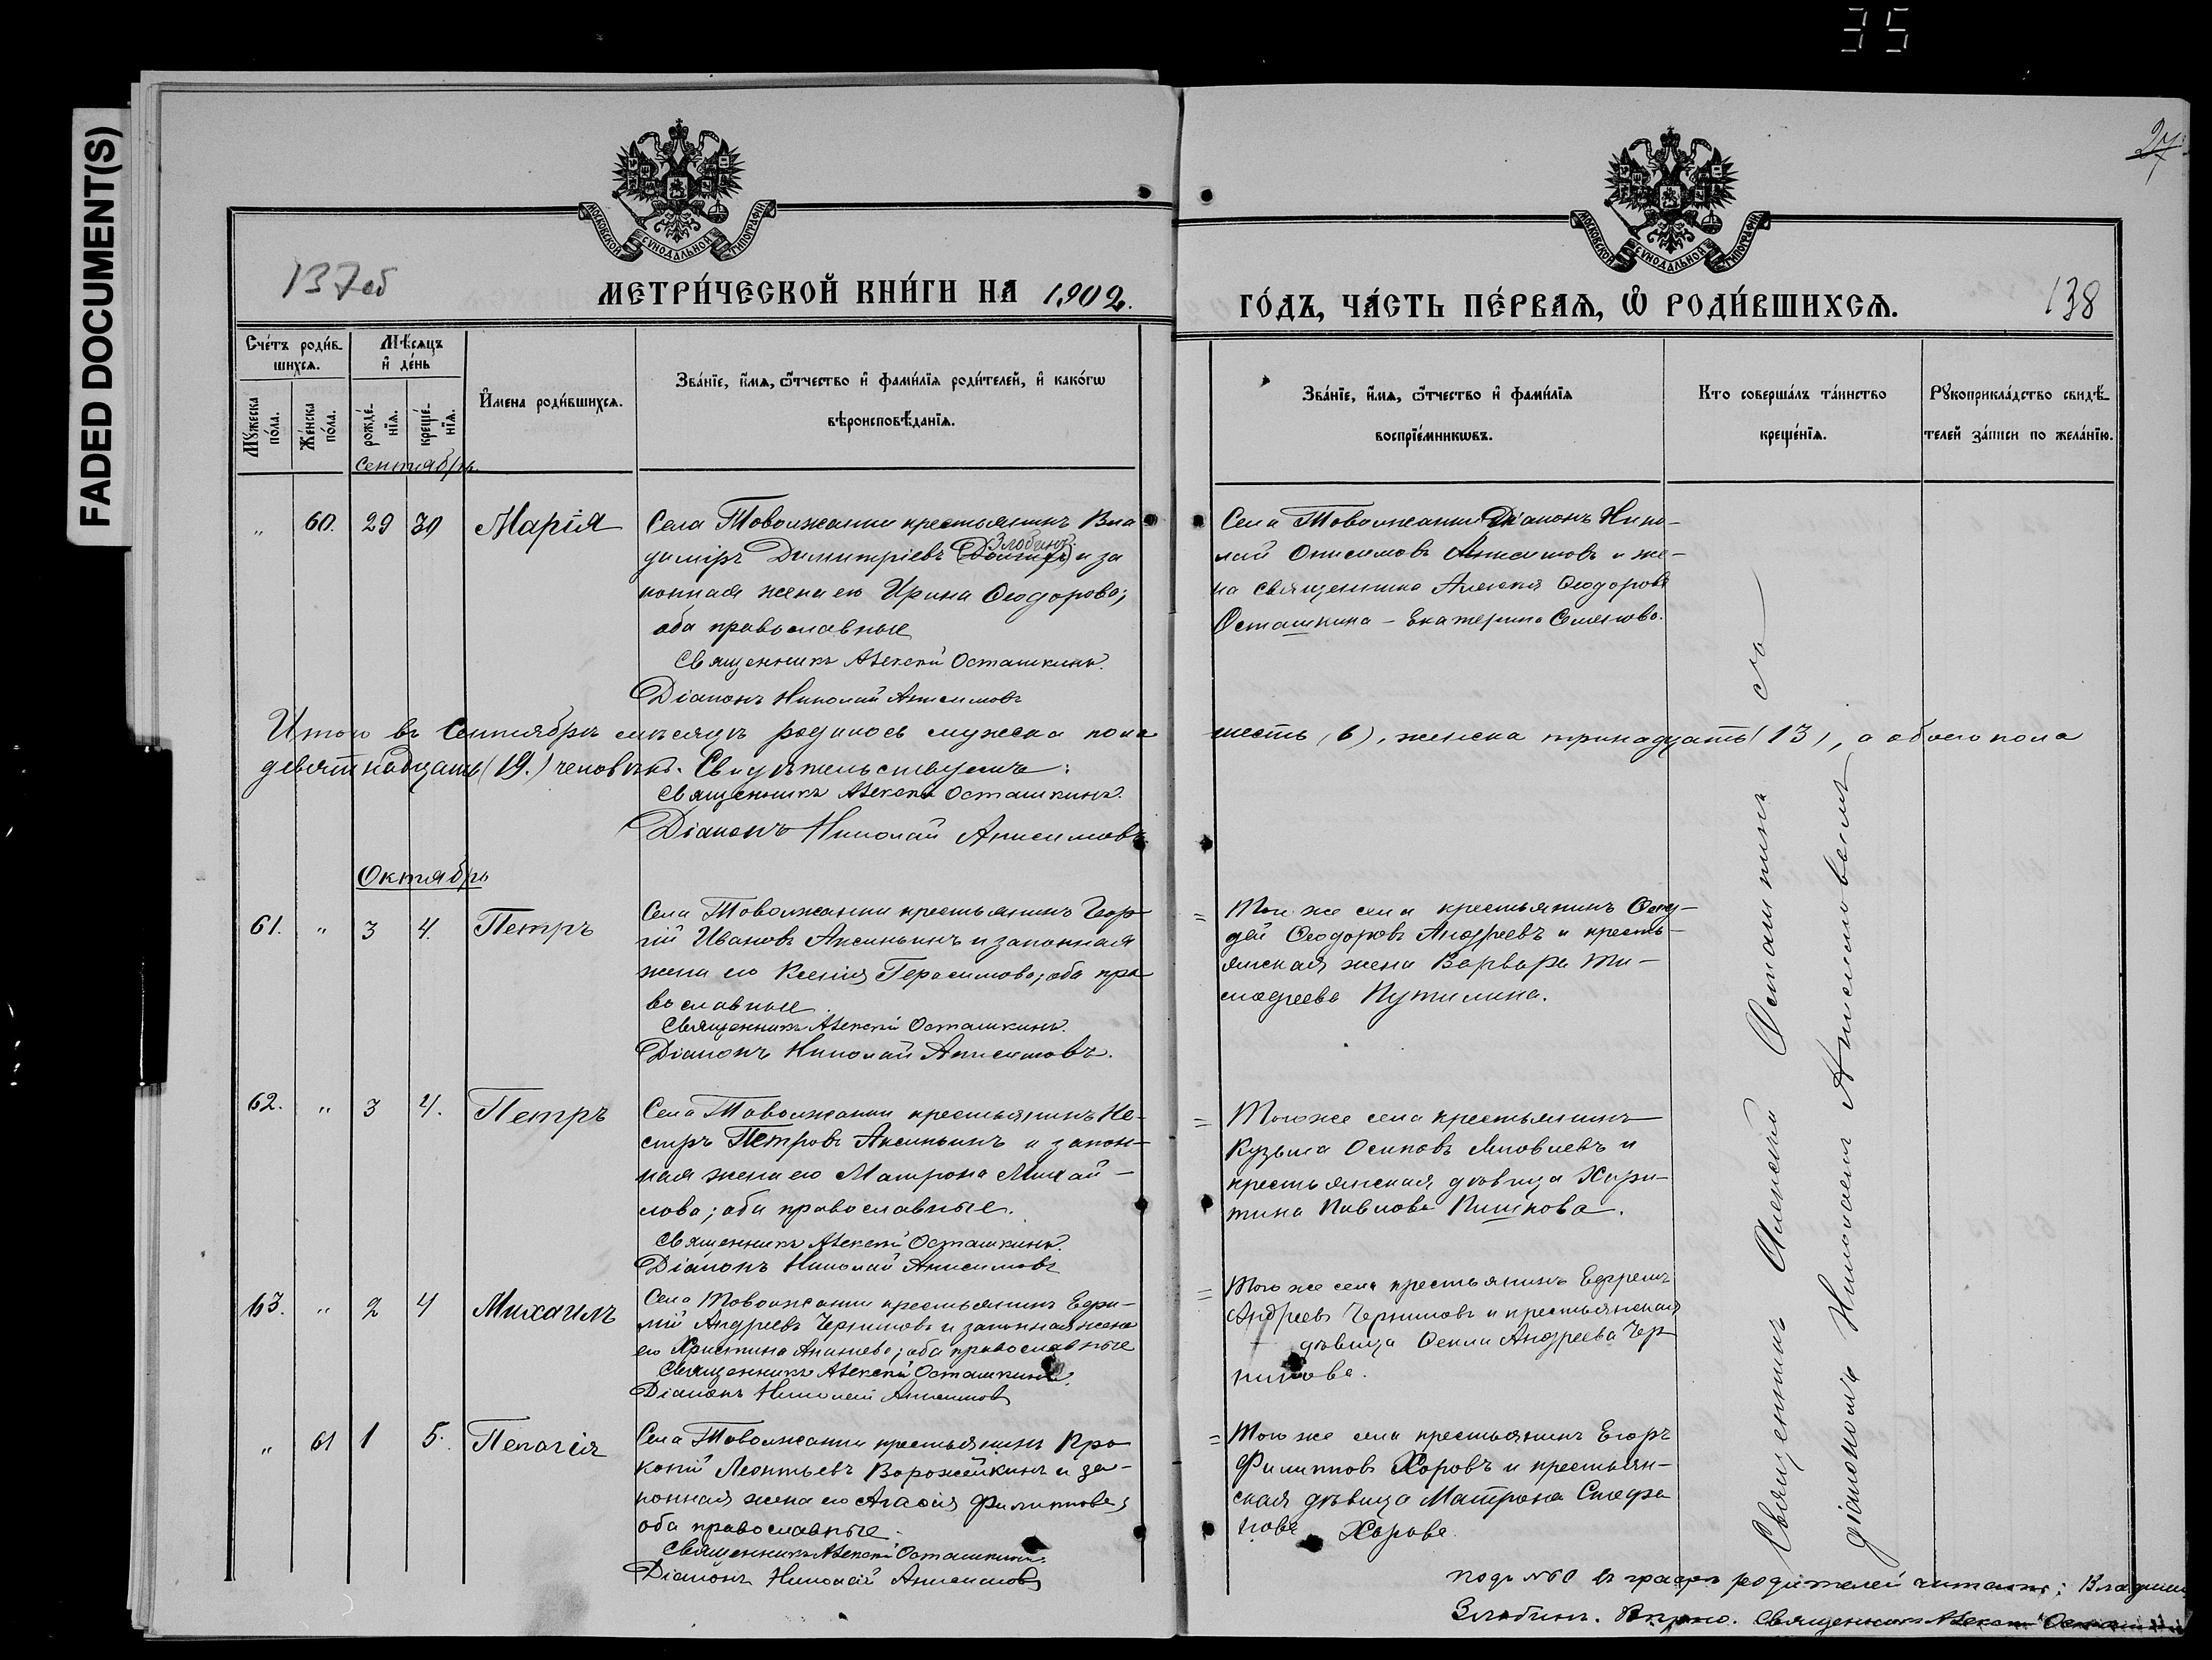 35
FADED DOCUMENT(S)
27
МОСКОВСКОЙ СѴНОДАЛЬНОЙ ТИПОГРАФІИ
МОСКОВСКОЙ СѴНОДАЛЬНОЙ ТИПОГРАФІИ
137об
МЕТРИ́ЧЕСКОЙ КНИ́ГИ НА 1902.
ГО́ДЪ, ЧА́СТЬ ПЕ́РВАѦ, Ѿ РОДИ́ВШИХСѦ.
138
Сче́тъ роди́в-
шихсѧ.
Мꙋжеска
по́ла.
Же́нска
по́ла.
Мѣ́сѧцъ
и҆ де́нь
рожде́-
нїѧ.
креще́-
нїѧ.
И҆мена роди́вшихсѧ.
Зва́нїе, и҆́мѧ, ѻ҆́тчество и҆ фами́лїѧ роди́телей, и҆ како́гѡ
вѣроисповѣ́данїѧ.
Зва́нїе, и҆́мѧ, ѻ҆́тчество и҆ фами́лїѧ
воспрїе́мникѡвъ.
Кто соверша́лъ та́инство
креще́нїѧ.
Рꙋкоприкла́дство свидѣ́-
телей за́писи по жела́нїю.
Сентябрь.
" 60. 29 30 Марія
Села Товолжанки крестьянинъ Вла
Злобинъ.
димiръ Димитріевъ и за
конная жена его Ирина Ѳеодорова;
оба православные
Священникъ Алексѣй Осташкинъ.
Діаконъ Николай Анисимовъ
Села Товолжанки Діаконъ Нико-
лай Онисимовъ Анисимовъ и же-
на священника Алексія Ѳеодорова
Осташкина - Екатерина Семенова.
Итого въ Сентябрѣ мѣсяцѣ родилось мужеска пола шесть (6), женска тринадцать (13), а обоего пола
девятнадцать (19.) человѣкъ. Свидѣтельствуемъ:
Священникъ Алексѣй Осташкинъ.
Діаконъ Николай Анисимовъ
Октябрь
61. " 3 4. Петръ
Села Товолжанки крестьянинъ Геор-
гій Ивановъ Аксиньинъ и законная
жена его Ксенія Герасимова; оба пра
вославные.
Священникъ Алексѣй Осташкинъ.
Діаконъ Николай Анисимовъ.
= Того же села крестьянинъ
Ѳеодоровъ Андреевъ и кресть-
янская жена Варвара Ти-
моѳеева Путилина.
62. " 3 4. Петръ
Села Товолжанки крестьянинъ Не-
стръ Петровъ Аксиньинъ и закон-
ная жена его Матрона Михай-
лова; оба православные.
Священникъ Алексѣй Осташкинъ.
Діаконъ Николай Анисимовъ
= Того же села крестьянинъ
Кузьма Осиповъ Яковлевъ и
крестьянская дѣвица Хари-
тина Павлова Пишкова.
63. " 2 4 Михаилъ
Села Товолжанки крестьянинъ Ефи-
мій Андреевъ Черниковъ и законная жена
его Христина Ананьева; оба православные
Священникъ Алексѣй Осташкинъ.
Діаконъ Николай Анисимовъ
= Того же села крестьянинъ Ефремъ
Андреевъ Черниковъ и крестьянская
дѣвица Ѳекла Андреева Чер-
никова.
" 61 1 5. Пелагія
Села Товолжанки крестьянинъ Про
копій Леонтьевъ Ворожейкинъ и за-
конная жена его Агаѳія Филиппова;
оба православные.
Священникъ Алексѣй Осташкинъ.
Діаконъ Николай Анисимовъ
= Того же села крестьянинъ Егоръ
Филипповъ Хоровъ и крестьян-
ская дѣвица Матрона Стефа
нова Хорова.
Священникъ Алексѣй Осташкинъ съ
діакономъ Николаемъ Анисимовымъ
Подъ №60 въ графѣ родителей читать: Владим
Злобинъ. Вѣрно. Священникъ Алексѣй Осташкинъ